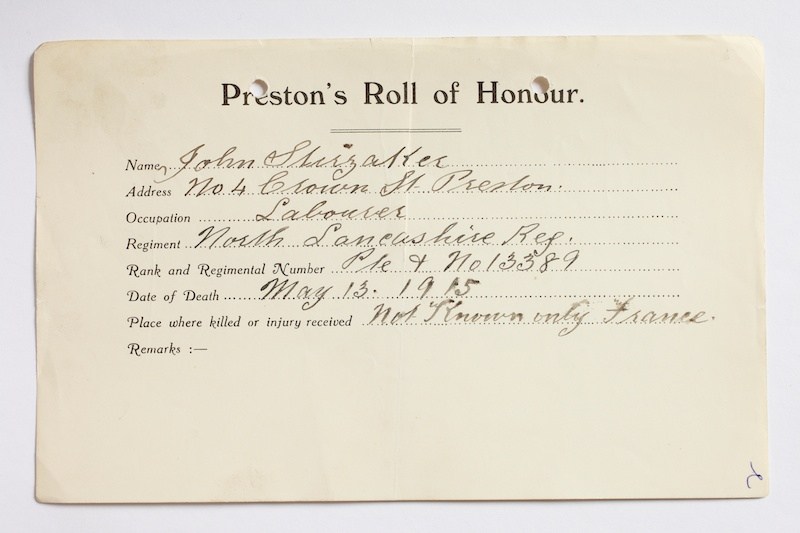 Preston's Roll of Honour.
Name, John Stirzaker
Address No 4 Crown St Preston.
Occupation Labourer
Regiment North Lancashire Reg.
Rank and Regimental Number Pte & No 13389
Date of Death May 13. 1915
Place where killed or injury received Not Known only France.
Remarks :—